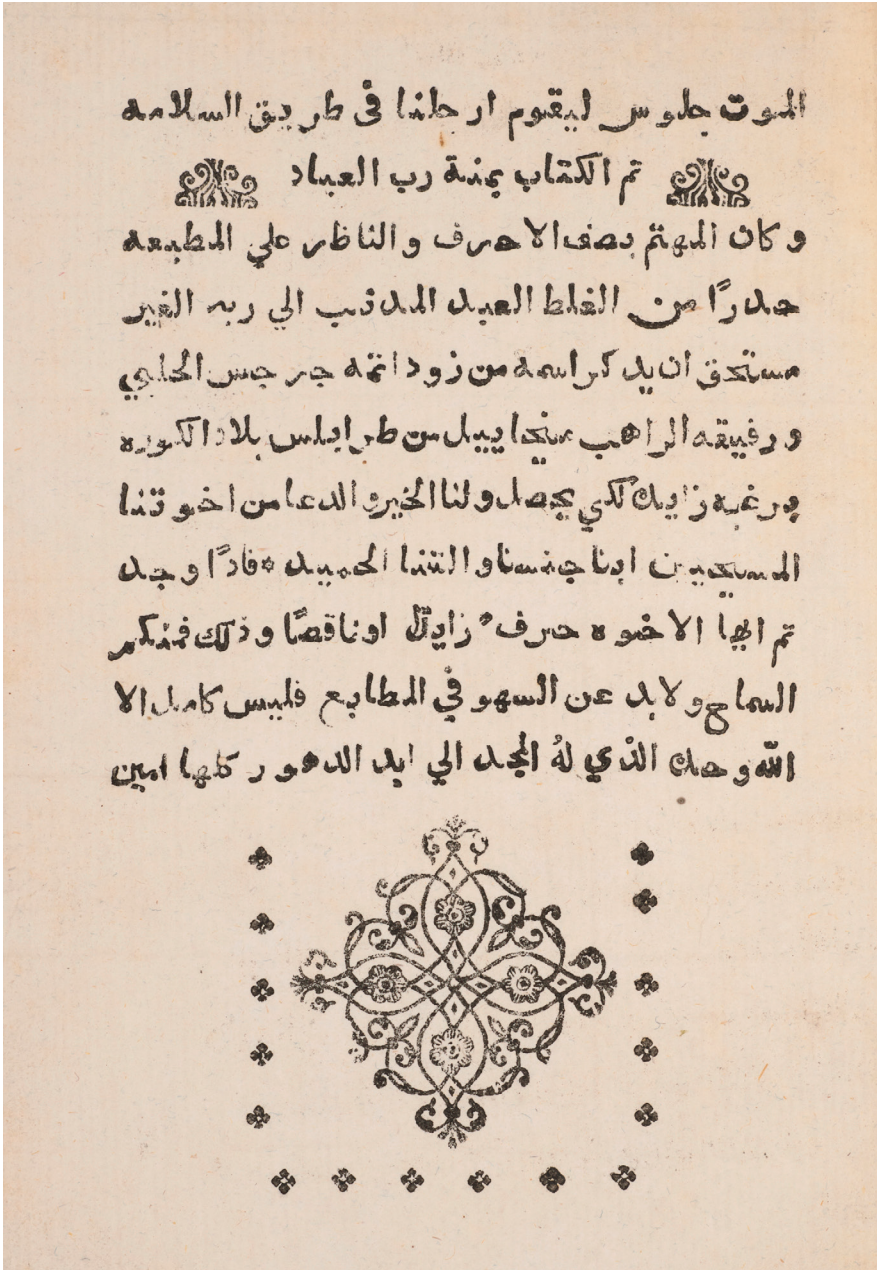 الموت جلوس ليقوم ارجلنا في طريق السلامه
تم الكتاب بمنة رب العباد
وكان المهتم بصف الاحرف والناظر علي المطبعه
حدرًا من الغلط العبد المدنب الي ربه الغير
مستحق ان يدكر اسمه من زود اتمه جرجس الحلبي
ورفيقه الراهب ميخاييل من طرابلس بلاد الكوره
برغبه زايدة لكي يحصل ولنا الخير والدعا من اخوتنا
المسيحيين ابنا جنسنا والتنا الحميده فادًا وجد
تم ايها الاخوه حرف زايدًا او ناقصًا ودلك فمنكم
السماح ولابد عن السهو في المطابع فليس كامل الا
الله وحدة الدي لهُ المجد الي ابد الدهور كلها امين